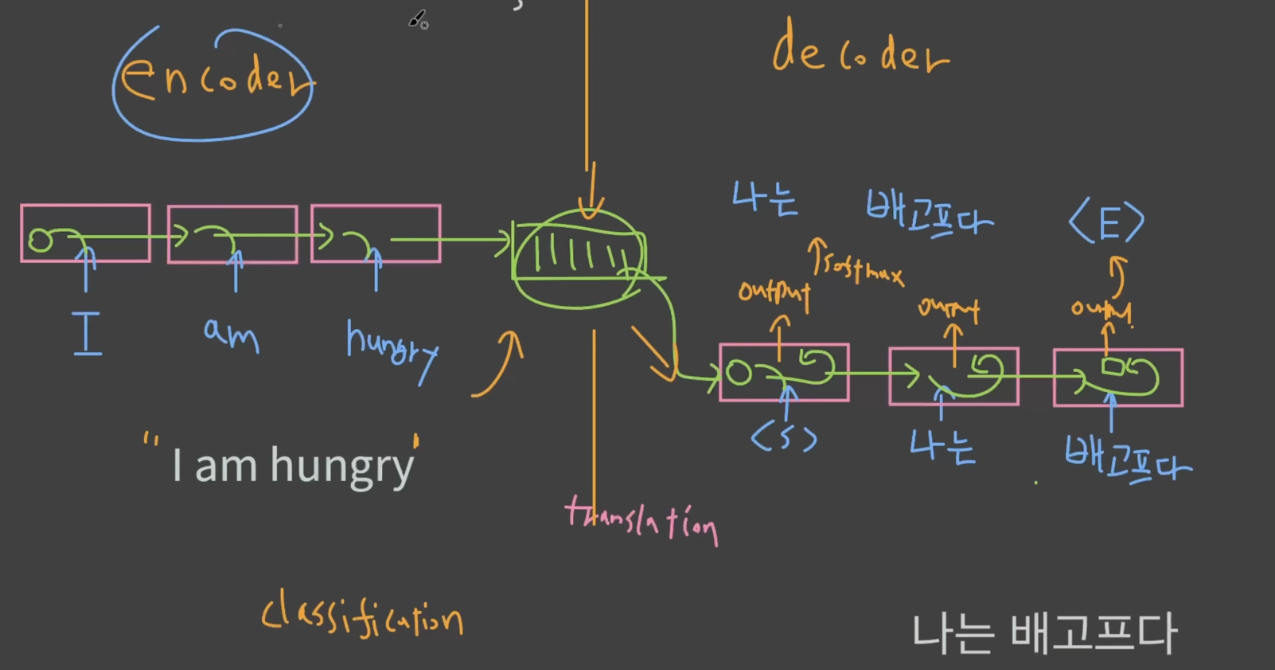 encoder
decoder
나는 배고프다 <E>
softmax
output output output
I am hungry
<S> 나는 배고프다
"I am hungry"
translation
classification
나는 배고프다